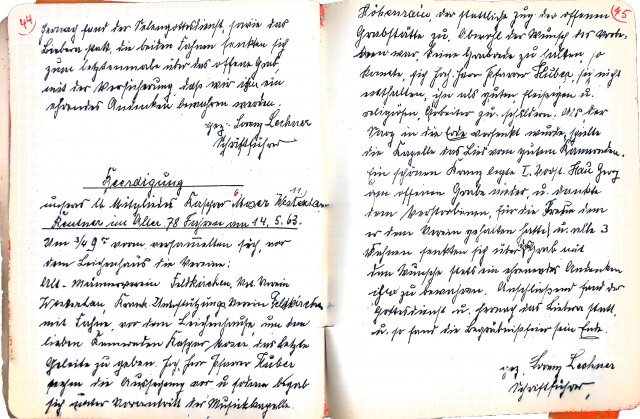 44
hernach fand der Seelengottesdienst, sowie das
Libera statt, die beiden Fahnen senkten sich
zum letztenmale über das offene Grab
mit der Versicherung, dass wir ihm ein
ehrendes Andenken bewahren werden.
gez. Lorenz Lechner
Schriftführer
Beerdigung
unseres lb. Mitgliedes Kaspar Moser Westerham
Rentner im Alter 78 Jahren am 14.5.63.
Um 3/4 9 Uhr vorm. versammelten sich, vor
dem Leichenhaus die Vereine:
Alt-Männerverein Feldkirchen, Vet. Verein
Westerham, Krank. Unterstützungs Verein Feldkirchen
mit Fahne, vor dem Leichenhause, um dem
lieben Kameraden Kaspar Moser, das letzte
Geleite zu geben. Hochw. Herr Pfarrer Huber
nahm die Aussegnung vor u. sodann begab
sich unter Vorantritt der Musikkapelle
45
Höhenrain, der stattliche Zug der offenen
Grabstätte zu. Obwohl der Wunsch des Verstor-
benen war, keine Grabrede zu halten, so
konnte, sich Hochw. Herr Pfarrer Huber, sich nicht
enthalten, ihn als guten fleissigen u.
religiösen Arbeiter zu schildern. Als der
Sarg in die Erde versenkt wurde, spielte
die Kapelle das Lied vom guten Kameraden.
Ein schönen Kranz legte I. Vorst. Hau Georg
am offenen Grabe nieder, u. dankte
dem Verstorbenen, für die Treue, die
er dem Verein gehalten hatte, u. alle 3
Fahnen senkten sich über das Grab mit
dem Wunsche stets ein ehrendes Andenken
ihm zu bewahren. Anschließend fand der
Gottesdienst u. hernach das Libera statt,
u. so fand die Begräbnisfeier sein Ende.
gez. Lorenz Lechner
Schriftführer